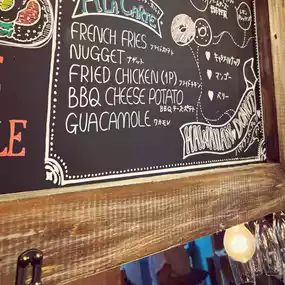 À LA CARTE
FRENCH FRIES フライポテト
NUGGET ナゲット
FRIED CHICKEN (1P) フライドチキン
BBQ CHEESE POTATO BBQチーズポテト
GUACAMOLE ワカモレ
キャラメルナッツ
マンゴー
ベリー
HAWAIIAN DONUT
LE